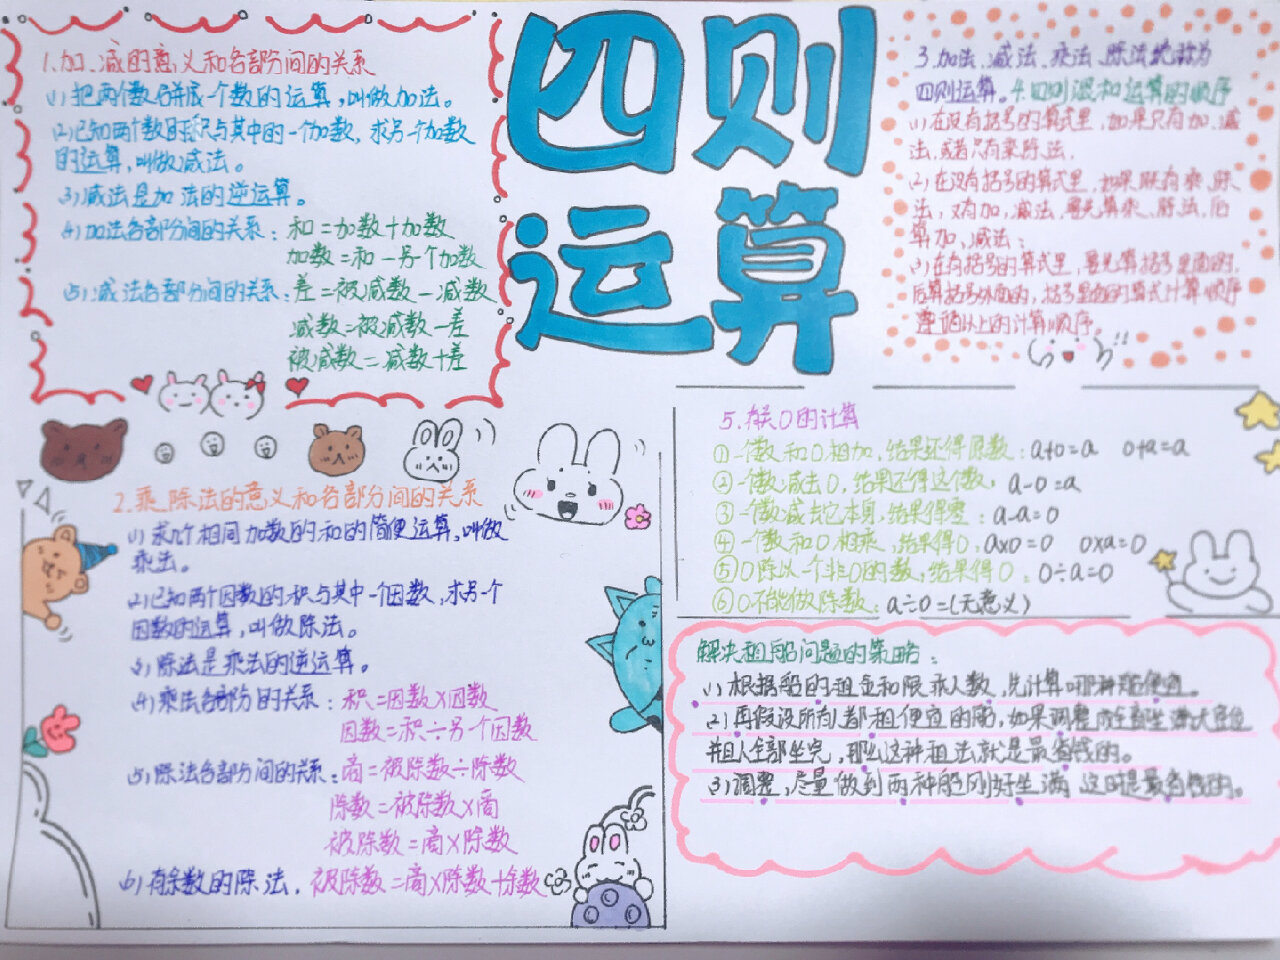 四则
运算
1.加、减的意义和各部分间的关系
(1)把两个数合并成一个数的运算,叫做加法。
(2)已知两个数的积与其中的一个加数,求另一个加数
的运算,叫做减法。
(3)减法是加法的逆运算。
(4)加法各部分间的关系:和=加数+加数
加数=和-另一个加数
(5)减法各部分间的关系:差=被减数-减数
减数=被减数-差
被减数=减数+差
2.乘、除法的意义和各部分间的关系
(1)求几个相同加数的和的简便运算,叫做
乘法。
(2)已知两个因数的积与其中一个因数,求另个
因数的运算,叫做除法。
(3)除法是乘法的逆运算。
(4)乘法各部分的关系:积=因数×因数
因数=积÷另个因数
(5)除法各部分间的关系:商=被除数÷除数
除数=被除数×商
被除数=商×除数
(6)有余数的除法,被除数=商×除数+余数
3.加法、减法、乘法、除法统称为
四则运算。4.四则混和运算的顺序
(1)在没有括号的算式里,如果只有加、减
法,或者只有乘除法,
(2)在没有括号的算式里,如果既有乘、除、
法,又有加,减法,要先算乘、除法,后
算加、减法;
(3)在有括号的算式里,要先算括号里面的,
后算括号外面的,括号里面的算式计算顺序
遵循以上的计算顺序。
!!
5.有关0的计算
①一个数和0相加,结果还得原数:a+0=a 0+a=a
②一个数减去0,结果还得这个数:a-0=a
③一个数减去它本身,结果得零:a-a=0
④一个数和0相乘,结果得0:a×0=0 0×a=0
⑤0除以一个非0的数,结果得0:0÷a=0
⑥0不能做除数:a÷0=(无意义)
解决租船问题的策略:
(1)根据船的租金和限乘人数,先计算哪种船便宜。
(2)再假设所有人都租便宜的船,如果调整后全部坐满式座位
并且人全部坐完,那么这种租法就是最省钱的。
(3)调整,尽量做到两种船刚好坐满,这时是最省钱的。